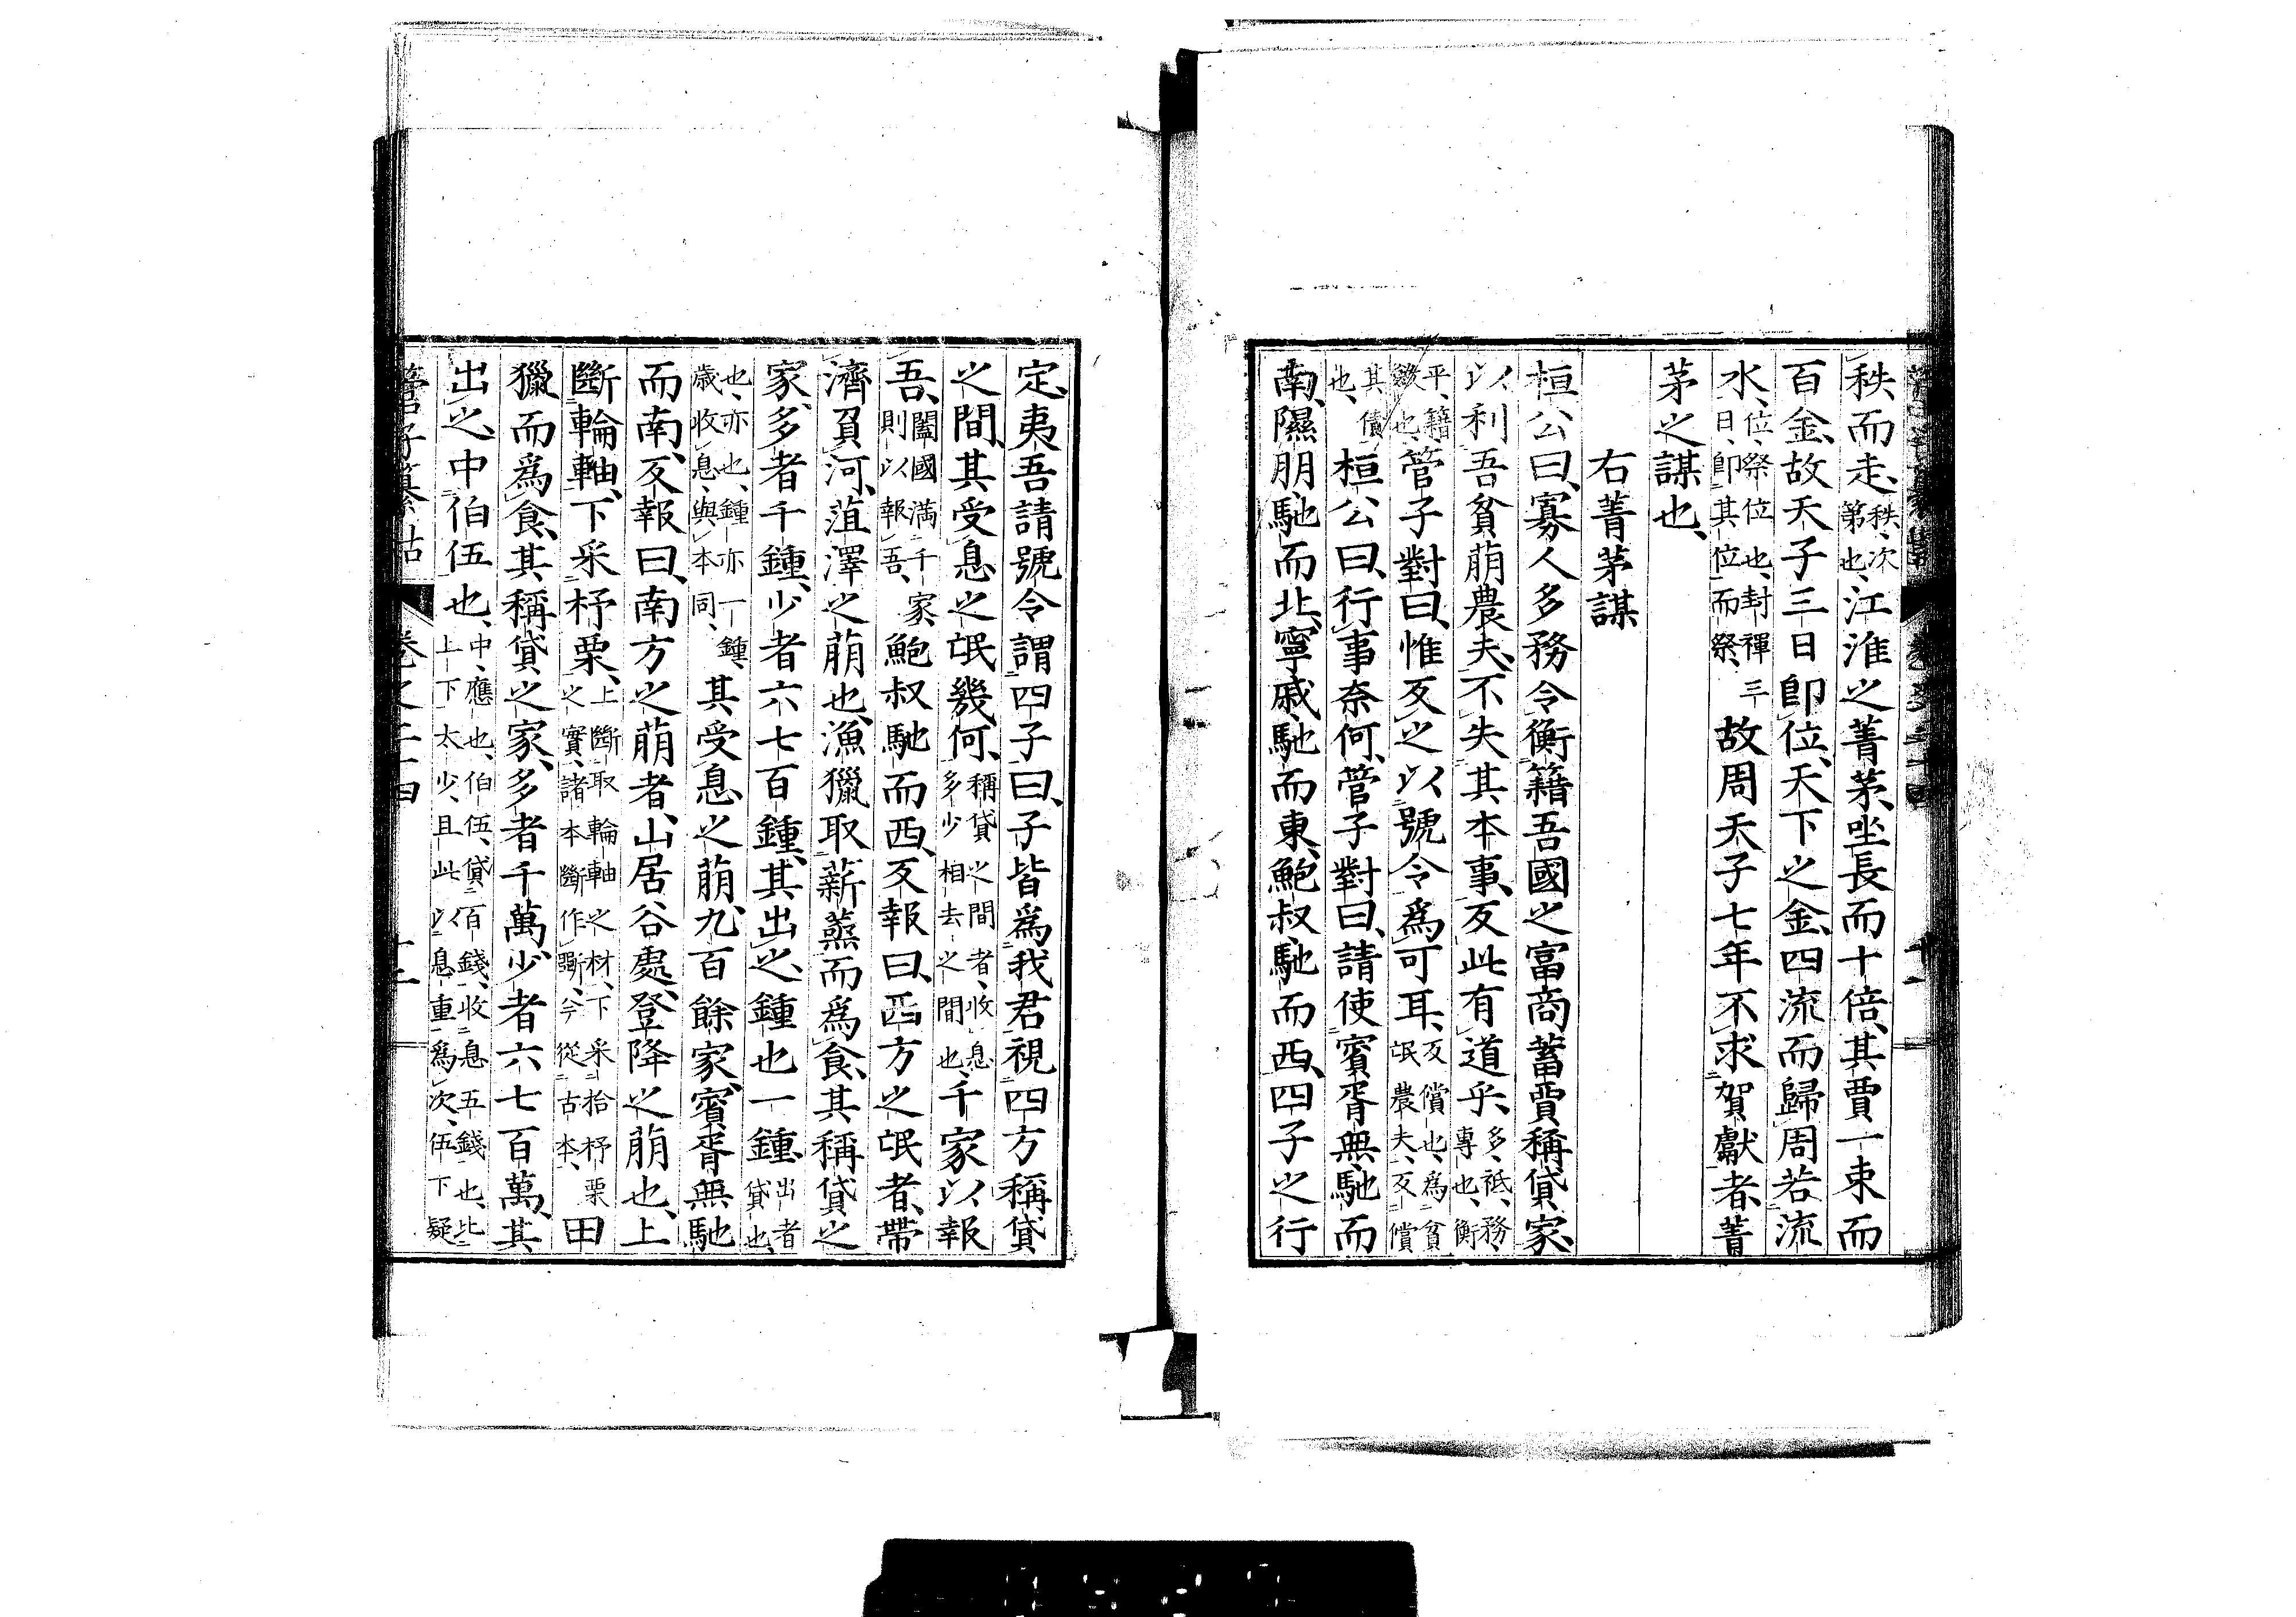 秩而走、秩、次第也、江淮之菁茅、坐長而十倍、其賈一束而
百金、故天子三日卽位、天下之金、四流而歸周若流
水、位、祭位也、封禪三日、卽其位而祭、故周天子七年不求賀獻者、菁
茅之謀也、
右菁茅謀
桓公曰、寡人多務令衡籍吾國之富商蓄賈稱貸家、
以利吾貧萠農夫、不失其本事、反此有道乎、多、祗、務、專也、衡
平、籍、斂也、管子對曰、惟反之以號令爲可耳、反、償也、爲貧氓農夫、反償
其債也、桓公曰、行事奈何、管子對曰、請使賓胥無馳而
南、隰朋馳而北、寧戚馳而東、鮑叔馳而西、四子之行
定、夷吾請號令謂四子曰、子皆爲我君視四方稱貸
之間、其受息之氓幾何、稱貸之間者、收息多少相去之間也、千家以報
吾、闔國滿千家、則以報吾、鮑叔馳而西、反報曰、西方之氓者、帶
濟負河、菹澤之萠也、漁獵取薪蒸而爲食、其稱貸之
家、多者千鍾、少者六七百鍾、其出之、鍾也一鍾、出者貸也、
也、亦也、鍾亦一鍾、歲收息、與本同、其受息之萠、九百餘家、賓胥無馳
而南、反報曰、南方之萠者、山居谷處、登降之萠也、上
斷輪軸、下采杼栗、上斷取輪軸之材、下采拾杼栗之實、諸本斷作斲、今從古本、田
獵而爲食、其稱貸之家、多者千萬、少者六七百萬、其
出之、中伯伍也、中、應也、伯伍、貸百錢、收息五錢也、比上下太少、且此以息重爲次、伍下疑
管子纂詁 卷之二十四 十二